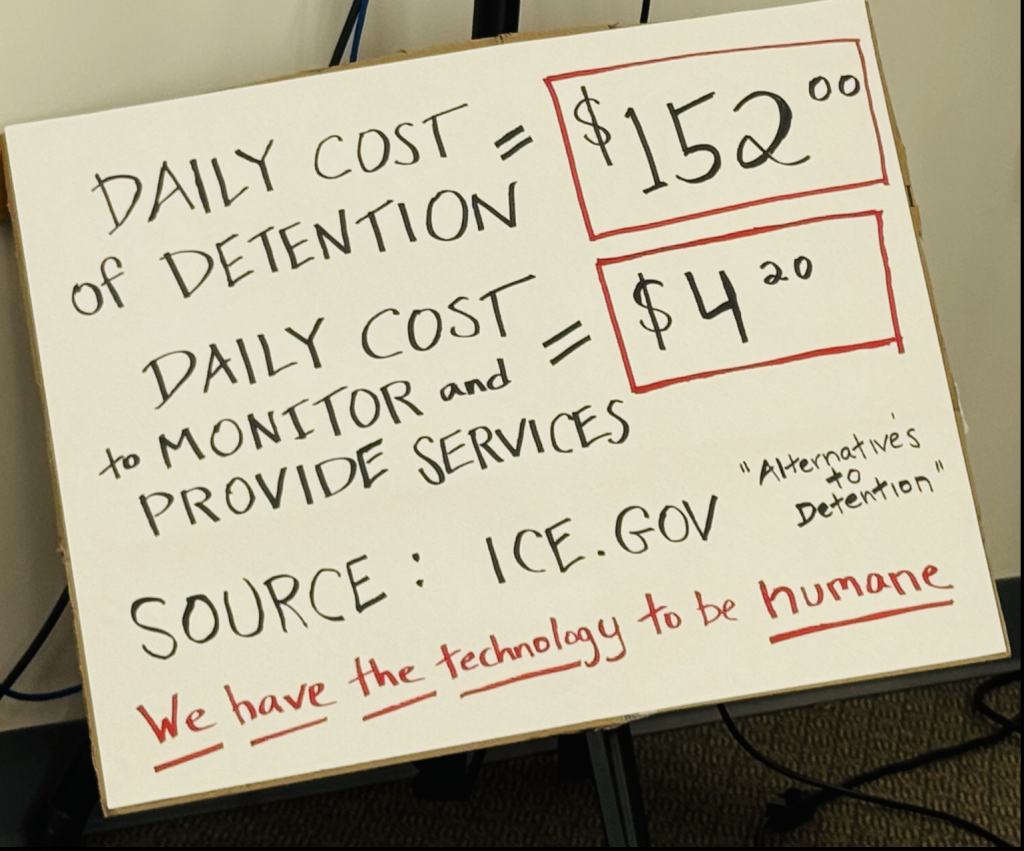 DAILY COST = $152 00
of DETENTION
DAILY COST = $4 20
to MONITOR and
PROVIDE SERVICES
"Alternative's
to
Detention"
SOURCE: ICE.GOV
We have the technology to be humane